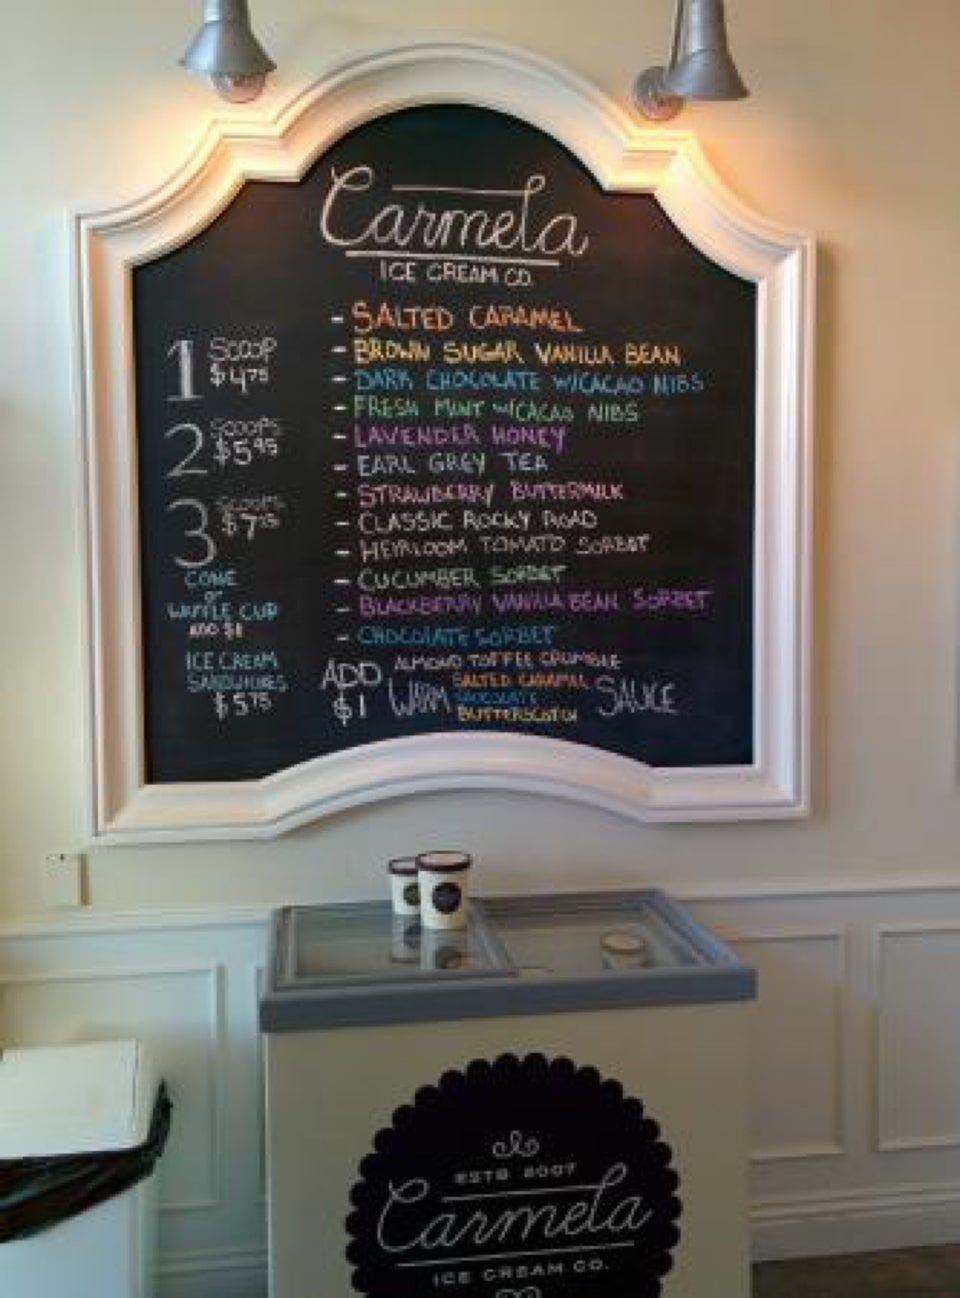 Carmela
ICE CREAM CO.
1 SCOOP
$4.75
2 SCOOPS
$5.95
3 SCOOPS
CONE
or
WAFFLE CUP
ADD $1
ICE CREAM
SANDWICHES
$5.75
- SALTED CARAMEL
- BROWN SUGAR VANILLA BEAN
- DARK CHOCOLATE W/CACAO NIBS
- FRESH MINT W/CACAO NIBS
- LAVENDER HONEY
- EARL GREY TEA
- STRAWBERRY BUTTERMILK
- CLASSIC ROCKY ROAD
- HEIRLOOM TOMATO SORBET
- CUCUMBER SORBET
- BLACKBERRY VANILLA BEAN SORBET
- CHOCOLATE SORBET
ADD
$1
ALMOND TOFFEE CRUMBLE
WARM
SALTED CARAMEL
CHOCOLATE
BUTTERSCOTCH
SAUCE
ESTD 2007
Carmela
ICE CREAM CO.